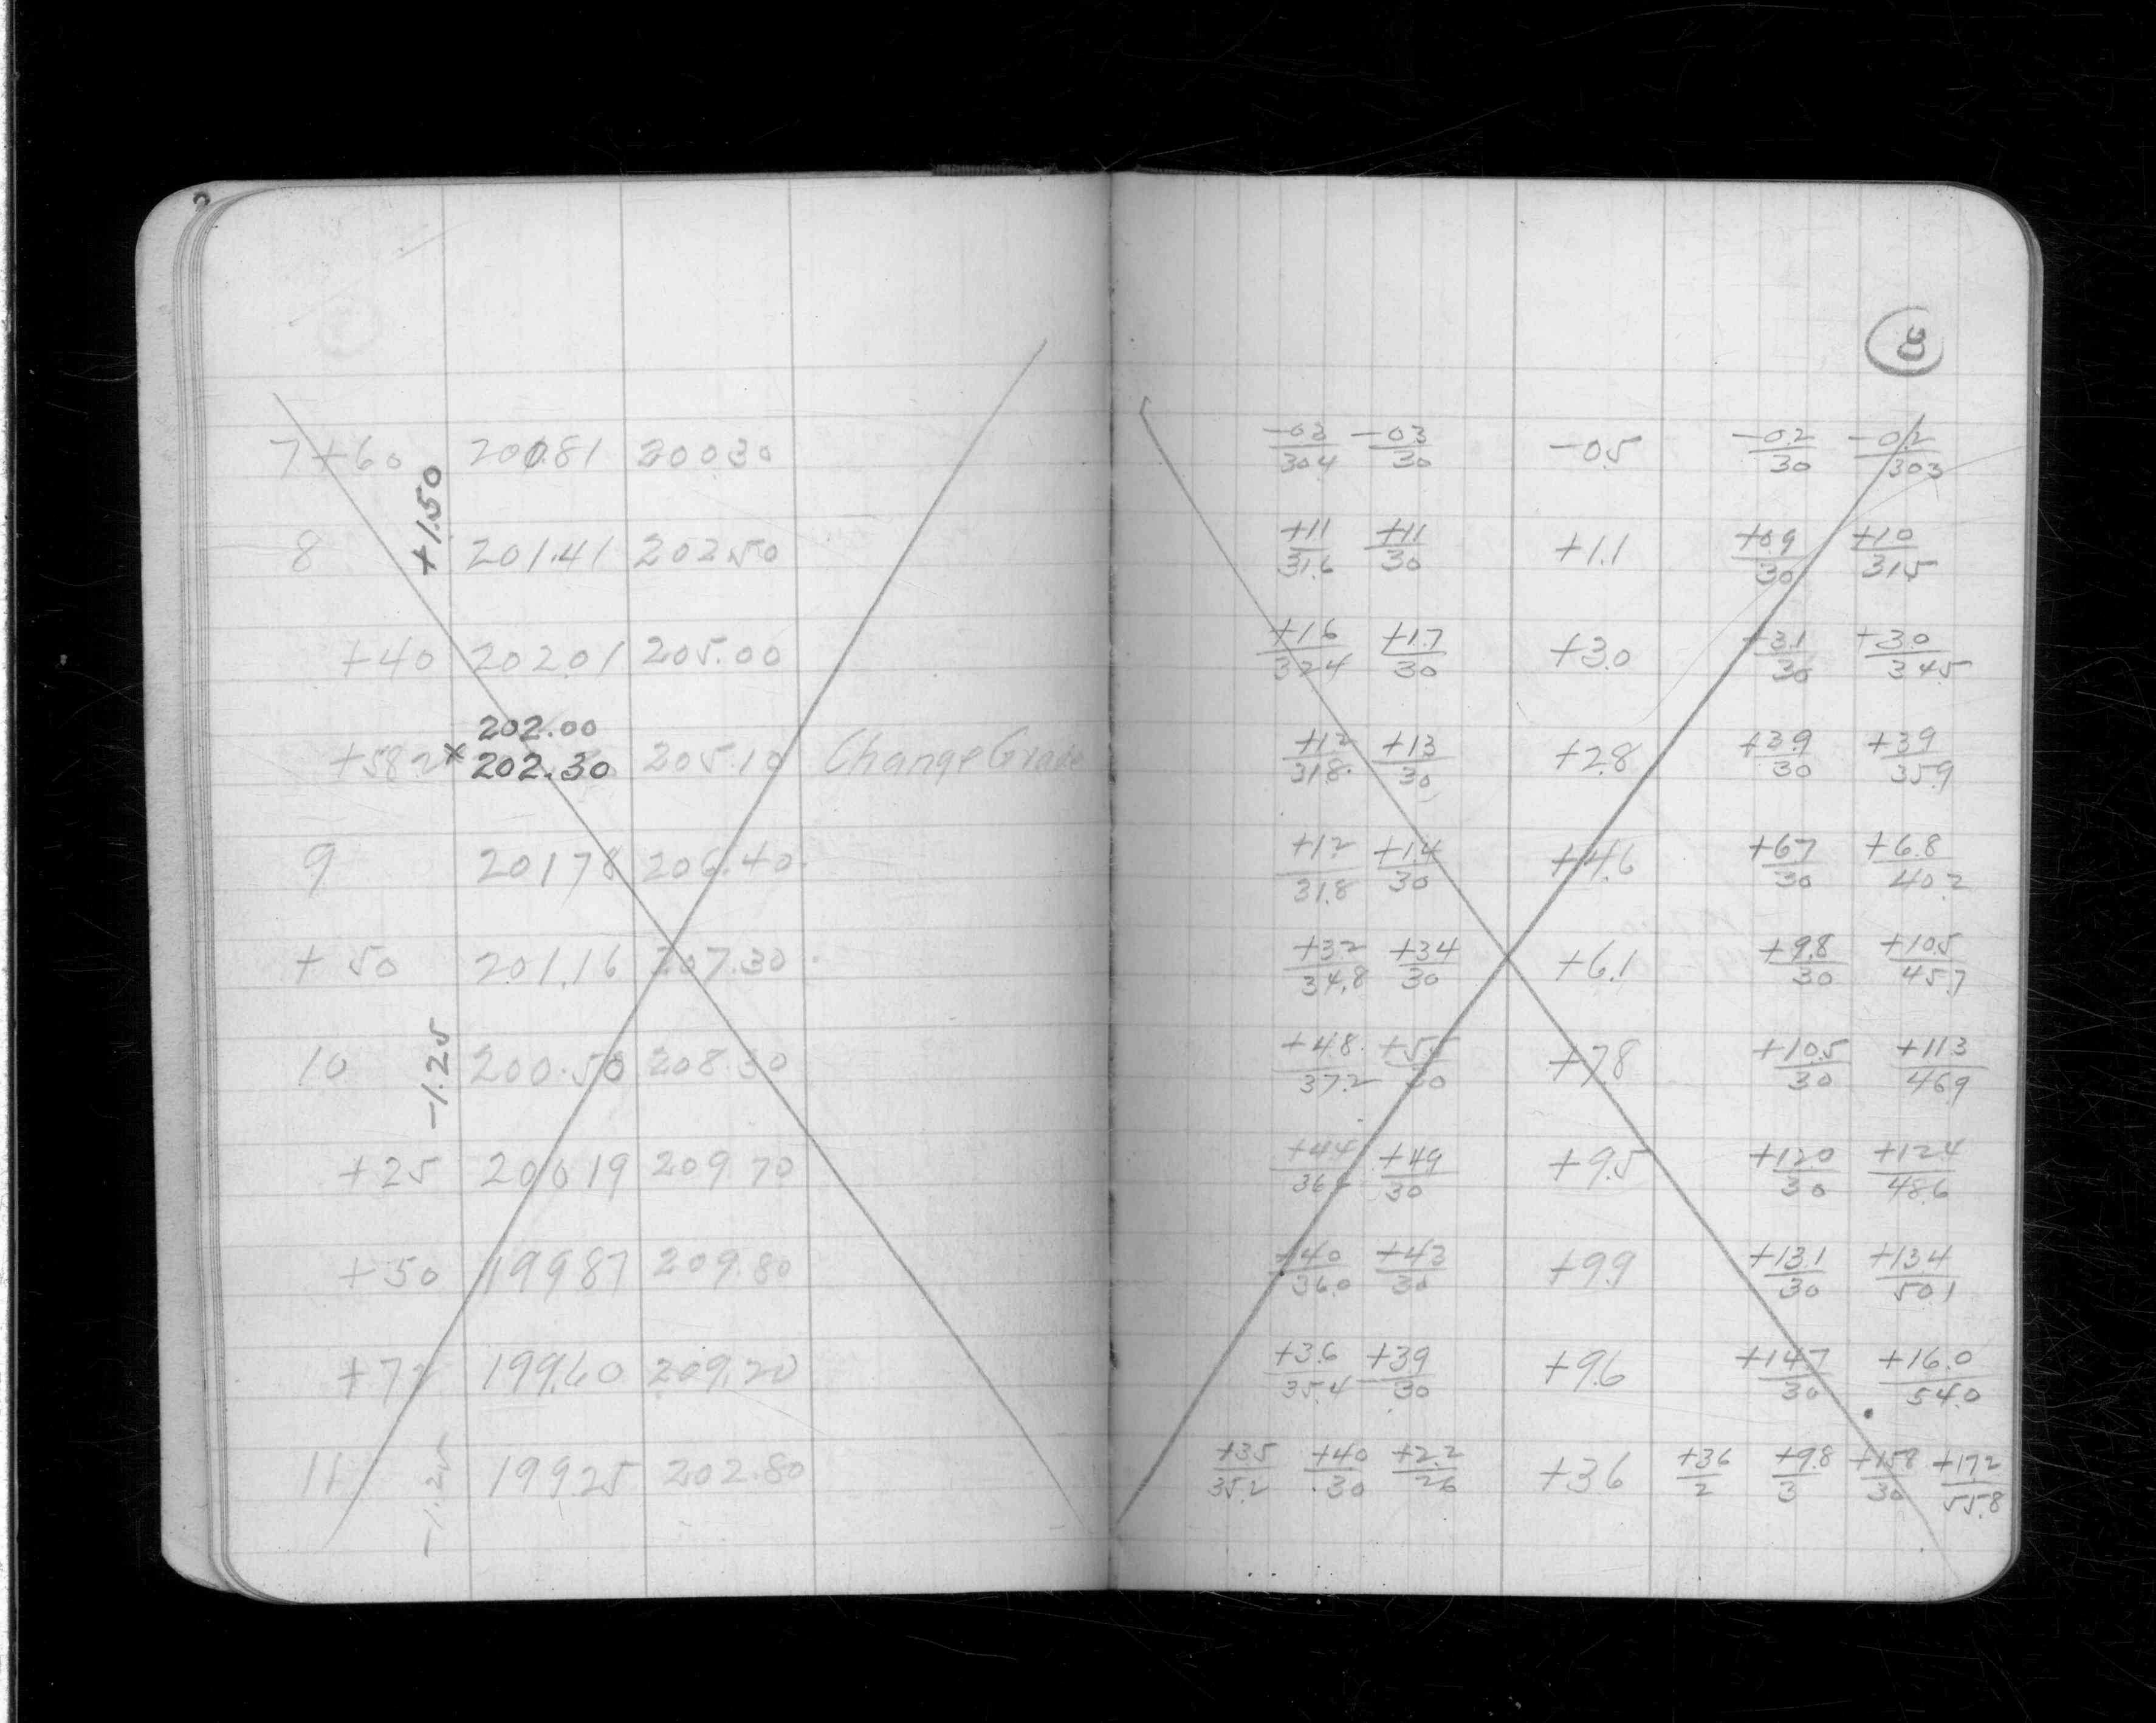 8
7+60 200.81 200.30 -0.3/30.4 -0.3/30 -0.5 -0.2/30 -0.2/30.3
+1.50
8 201.41 202.50 +1.1/31.6 +1.1/30 +1.1 +0.9/30 +1.0/31.5
+40 202.01 205.00 +1.6/32.4 +1.7/30 +3.0 +3.1/30 +3.0/34.5
202.00
+58.2 x 202.30 205.10 Change Grade +1.2/31.8 +1.3/30 +2.8 +3.9/30 +3.9/35.9
9 201.78 206.40 +1.2/31.8 +1.4/30 +4.6 +6.7/30 +6.8/40.2
+50 201.16 207.30 +3.2/34.8 +3.4/30 +6.1 +9.8/30 +10.5/45.7
10 200.50 208.30 +4.8/37.2 +7.8 +10.5/30 +11.3/46.9
-1.25
+25 200.19 209.70 +4.4 +4.9/30 +9.5 +12.0/30 +12.4/48.6
+50 199.87 209.80 +4.0/36.0 +4.3/30 +9.9 +13.1/30 +13.4/50.1
+72 199.60 209.20 +3.6/35.4 +3.9/30 +9.6 +14.7/30 +16.0/54.0
11 199.25 202.80 +3.5/35.2 +4.0/30 +2.2/26 +3.6 +3.6/2 +9.8/3 +15.8/30 +17.2/55.8
-1.25